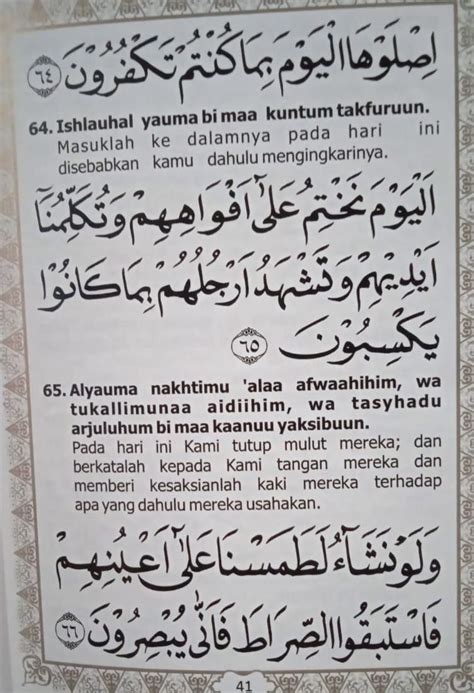 اِصْلَوْهَا الْيَوْمَ بِمَا كُنْتُمْ تَكْفُرُوْنَ ٦٤
64. Ishlauhal yauma bi maa kuntum takfuruun.
Masuklah ke dalamnya pada hari ini
disebabkan kamu dahulu mengingkarinya.
اَلْيَوْمَ نَخْتِمُ عَلٰٓى اَفْوَاهِهِمْ وَتُكَلِّمُنَآ
اَيْدِيْهِمْ وَتَشْهَدُ اَرْجُلُهُمْ بِمَا كَانُوْا
يَكْسِبُوْنَ ٦٥
65. Alyauma nakhtimu 'alaa afwaahihim, wa
tukallimunaa aidiihim, wa tasyhadu
arjuluhum bi maa kaanuu yaksibuun.
Pada hari ini Kami tutup mulut mereka; dan
berkatalah kepada Kami tangan mereka dan
memberi kesaksianlah kaki mereka terhadap
apa yang dahulu mereka usahakan.
وَلَوْ نَشَآءُ لَطَمَسْنَا عَلٰٓى اَعْيُنِهِمْ
فَاسْتَبَقُوا الصِّرَاطَ فَاَنّٰى يُبْصِرُوْنَ ٦٦
41